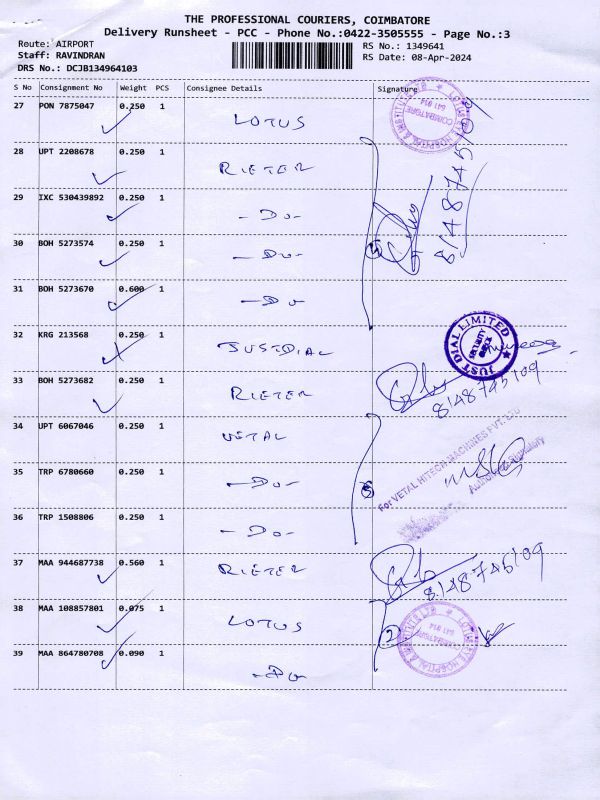 THE PROFESSIONAL COURIERS, COIMBATORE
Delivery Runsheet - PCC - Phone No.:0422-3505555 - Page No.:3
Route: AIRPORT RS No.: 1349641
Staff: RAVINDRAN RS Date: 08-Apr-2024
DRS No.: DCJB134964103
S No Consignment No Weight PCS Consignee Details Signature
27 PON 7875047 0.250 1 LOTUS
COIMBATORE
641 014
28 UPT 2208678 0.250 1 RIETER
8148745109
29 IXC 530439892 0.250 1 -Do-
30 BOH 5273574 0.250 1 -Do-
31 BOH 5273670 0.600 1 -Do
32 KRG 213568 0.250 1 JUSTDIAL
JUST DIAL LIMITED
33 BOH 5273682 0.250 1 RIETER
8148745109
34 UPT 6067046 0.250 1 VETAL
For VETAL HITECH MACHINES PVT. LTD
Authorised Signatory
35 TRP 6780660 0.250 1 -Do-
36 TRP 1508806 0.250 1 -Do-
37 MAA 944687738 0.560 1 RIETER
8148745109
38 MAA 108857801 0.075 1 LOTUS
2
LOTUS EYE HOSPITAL & INSTITUTE
COIMBATORE
641 014
39 MAA 864780708 0.090 1 -Do